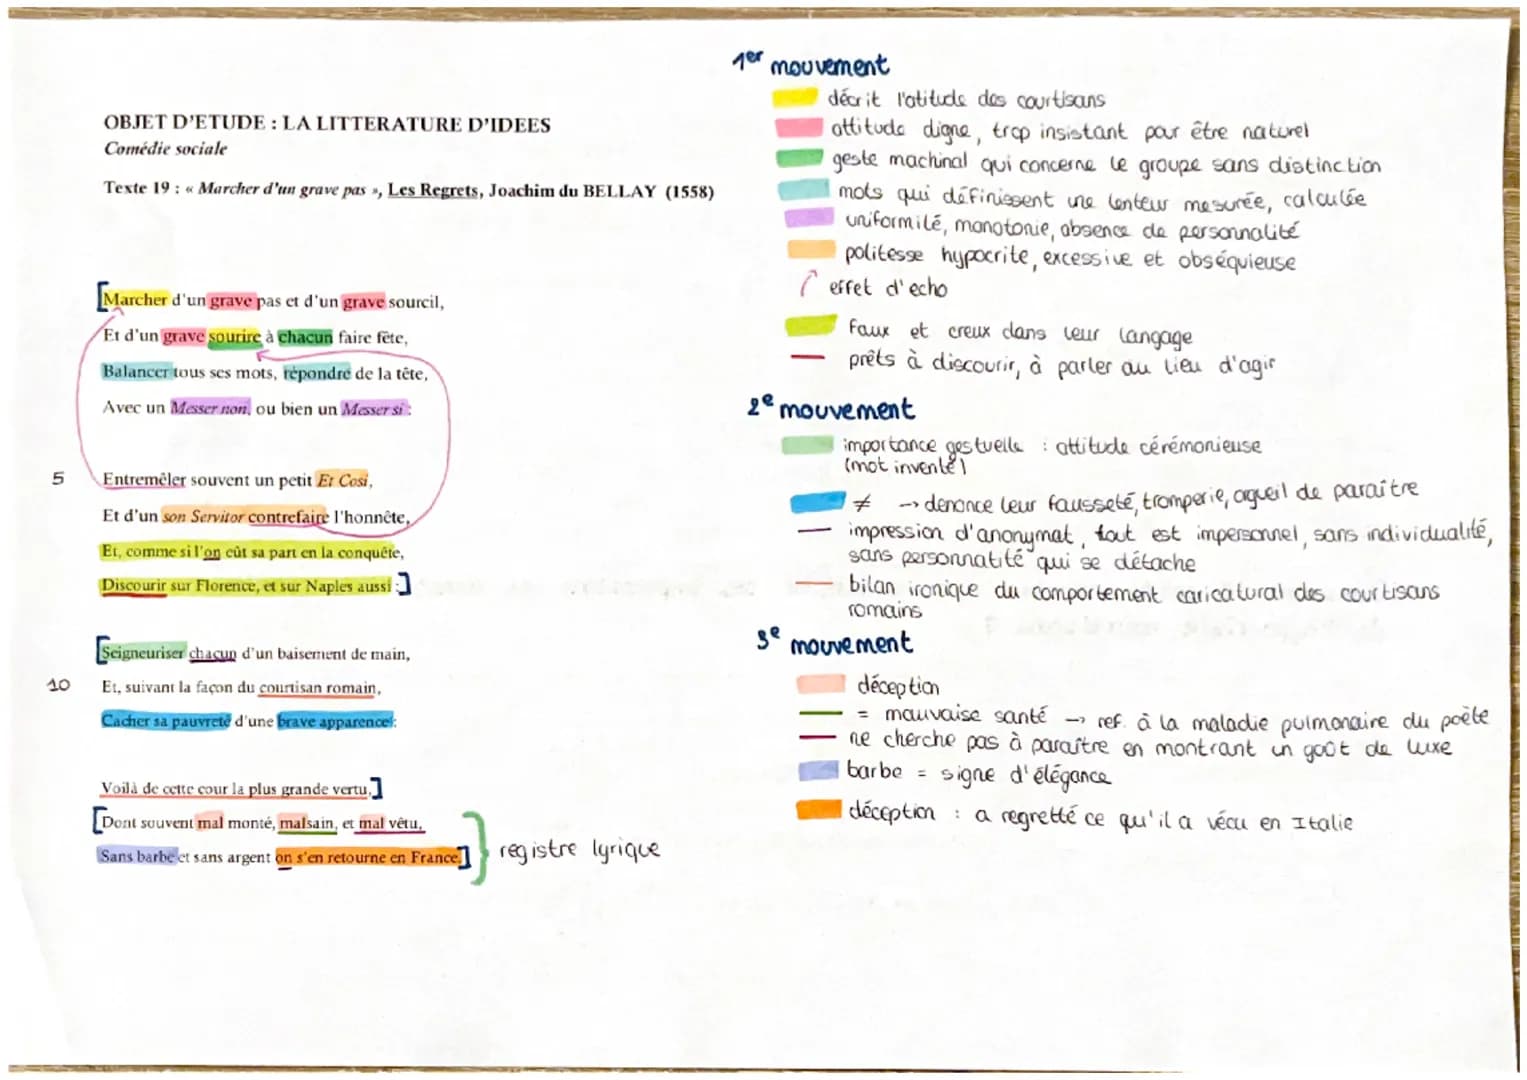 OBJET D'ETUDE : LA LITTERATURE D'IDEES
Comédie sociale
Texte 19 : « Marcher d'un grave pas », Les Regrets, Joachim du BELLAY (1558)
Marcher d'un grave pas et d'un grave sourcil,
Et d'un grave sourire à chacun faire fête,
Balancer tous ses mots, répondre de la tête,
Avec un Messer non, ou bien un Messer si :
5 Entremêler souvent un petit Et Cosi,
Et d'un son Servitor contrefaire l'honnête,
Et, comme si l'on eût sa part en la conquête,
Discourir sur Florence, et sur Naples aussi :
Seigneuriser chacun d'un baisement de main,
10 Et, suivant la façon du courtisan romain,
Cacher sa pauvreté d'une brave apparence :
Voilà de cette cour la plus grande vertu,
Dont souvent mal monté, malsain, et mal vêtu,
Sans barbe et sans argent on s'en retourne en France.
registre lyrique
1er mouvement
décrit l'atitude des courtisans
attitude digne, trop insistant pour être naturel
geste machinal qui concerne le groupe sans distinction
mots qui définissent une lenteur mesurée, calculée
uniformité, monotonie, absence de personnalité
politesse hypocrite, excessive et obséquieuse
effet d'echo
faux et creux dans leur langage
prêts à discourir, à parler au lieu d'agir
2e mouvement
importance gestuelle : attitude cérémonieuse
(mot inventé)
≠ → denonce leur fausseté, tromperie, orgueil de paraître
impression d'anonymat, tout est impersonnel, sans individualité,
sans personnatité qui se détache
bilan ironique du comportement caricatural des courtisans
romains
3e mouvement
déception
= mauvaise santé → ref. à la maladie pulmonaire du poète
ne cherche pas à paraître en montrant un goût de luxe
barbe = signe d'élégance
déception : a regretté ce qu'il a vécu en Italie